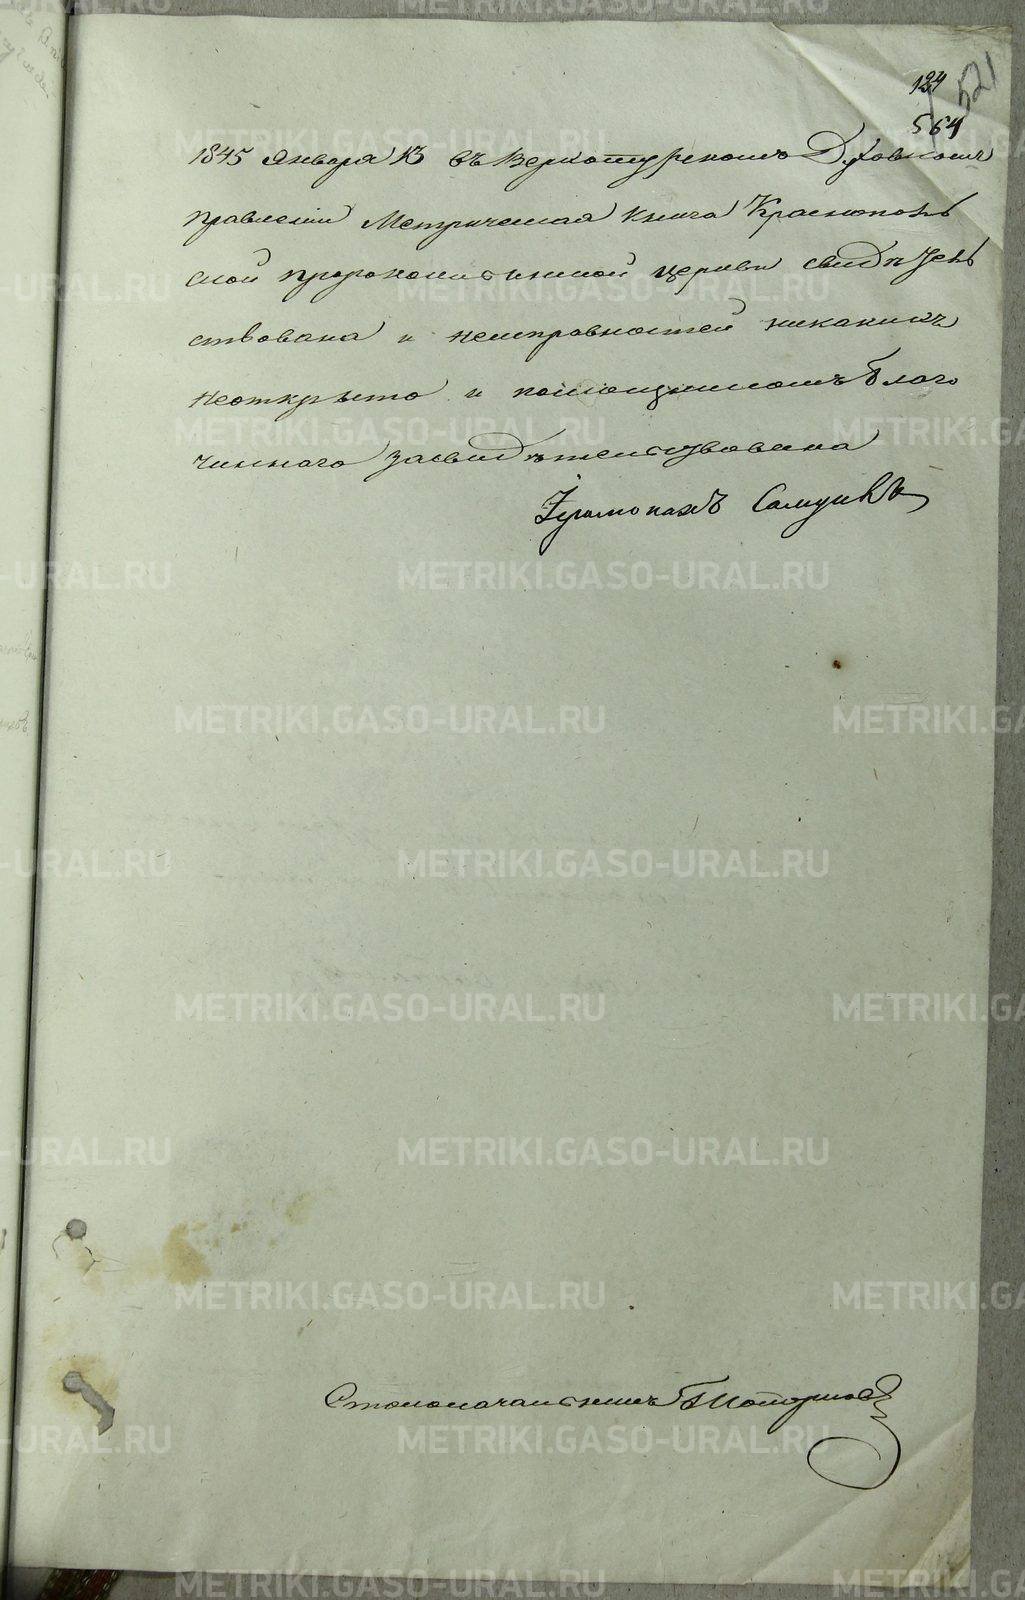 124
521
564
1845 Января 13 въ Верхотурскомъ Духовномъ
правленіи Метрическая книга Краснополь
ской пророкоильинской церкви свидѣтель
ствована и неисправностей никакихъ
неоткрыто и помощникомъ благо
чиннаго засвидѣтельствована
Іеромонахъ Самуилъ
Столоначальникъ
METRIKI.GASO-URAL.RU